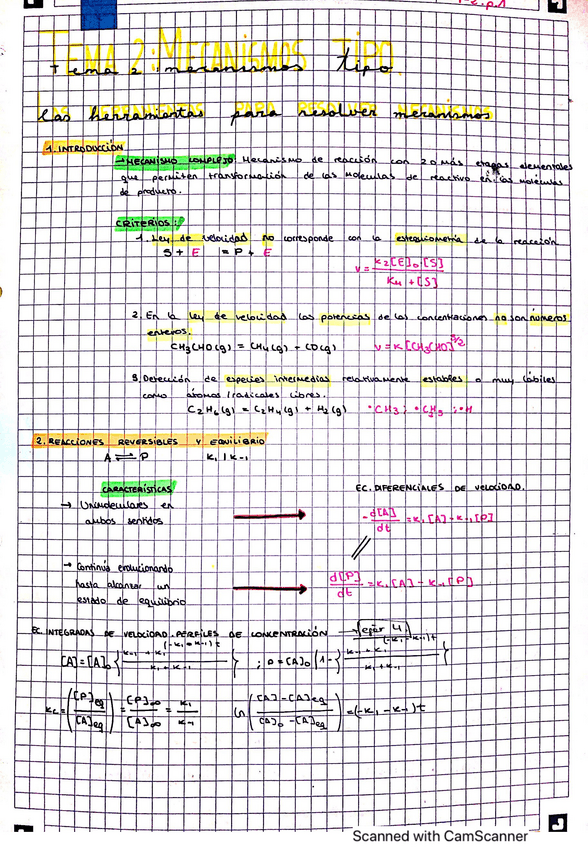 TEMA 2: MECANISMOS TIPO
Tema 2: mecanismos tipo
las herramientas para resolver mecanismos
1. INTRODUCCIÓN
→ MECANISMO COMPLEJO: Mecanismo de reacción con 2 o más etapas elementales
que permiten transformación de las moleculas de reactivo en las moléculas
de producto.
CRITERIOS:
1. Ley de velocidad no corresponde con la estequiometría de la reacción
S + E = P + E
v = K2[E]0·[S] / KM + [S]
2. En la ley de velocidad las potencias de las concentraciones no son números
enteros.
CH3CHO(g) = CH4(g) + CO(g) v = K[CH3CHO]^3/2
3. Detección de especies intermedias relativamente estables o muy lábiles
como átomos/radicales libres.
C2H6(g) = C2H4(g) + H2(g) ·CH3; ·CH3; ·H
2. REACCIONES REVERSIBLES Y EQUILIBRIO
A ⇌ P K1 / K-1
CARACTERÍSTICAS
EC. DIFERENCIALES DE VELOCIDAD.
→ Unimoleculares en
ambos sentidos
-d[A]/dt = K1[A] - K-1[P]
→ Continúa evolucionando
hasta alcanzar un
estado de equilibrio
d[P]/dt = K1[A] - K-1[P]
EC. INTEGRADAS DE VELOCIDAD. PERFILES DE CONCENTRACIÓN →
Kc = ([P]eq/[A]eq) = [P]∞/[A]∞ = K1/K-1
([A] - [A]eq / [A]0 - [A]eq) = (-K1 - K-1)t
Scanned with CamScanner